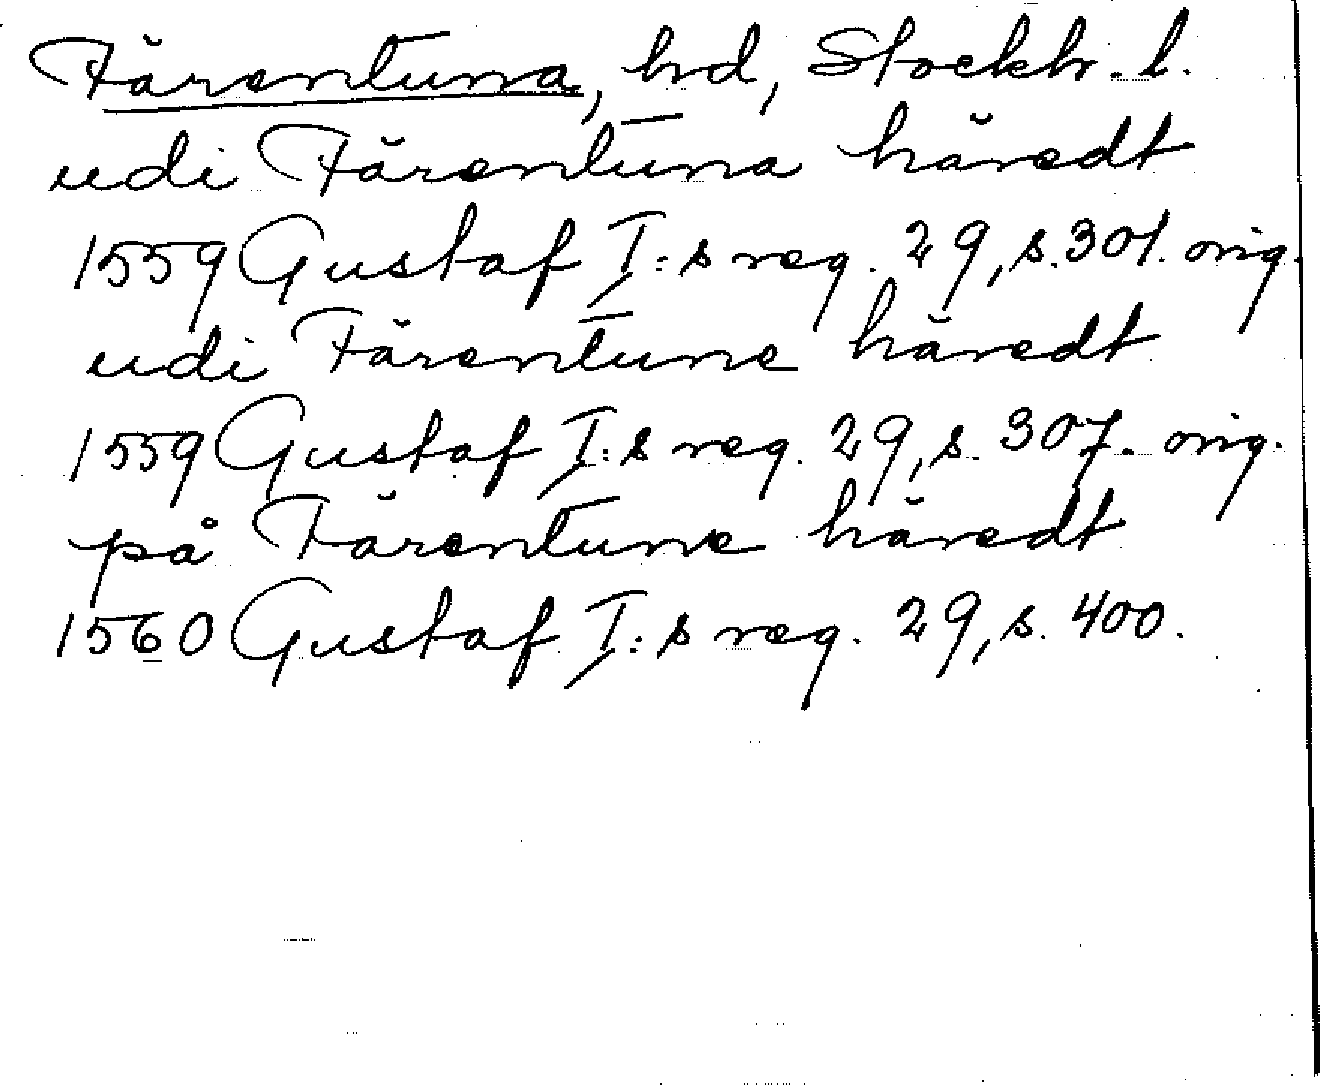 Färentuna, hd, Stockh. l.
udi Färentuna häredt
1559 Gustaf I:s reg. 29, s. 301. orig.
udi Färentune häredt
1559 Gustaf I:s reg. 29, s. 307. orig.
på Färentune häredt
1560 Gustaf I:s reg. 29, s. 400.